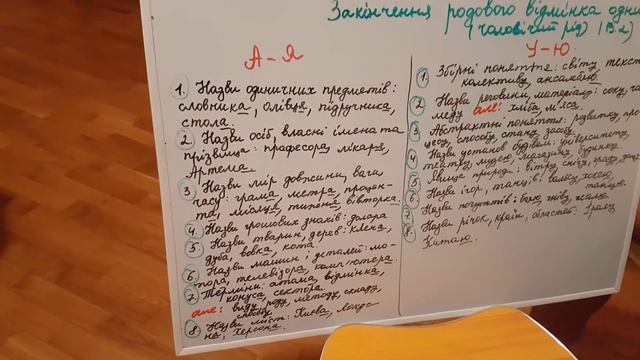 Закінчення родового відмінка одни
(чоловічий рід) (ІІ в.)
А-Я
1. Назви одиничних предметів:
словника, олівця, підручника,
стола.
2. Назви осіб, власні імена та
прізвища: професора, лікаря,
Артема.
3. Назви мір довжини, ваги,
часу: грама, метра, процен-
та, місяця, тижня, вівторка.
4. Назви грошових знаків: долара
5. Назви тварин, дерев: клена,
дуба, вовка, кота.
6. Назви машин і деталей: мо-
тора, телевізора, комп'ютера.
7. Терміни: атома, відмінка,
конуса, сектора.
але: виду, роду, методу, складу,
8. Назви міст: Києва, Лондо-
на, Херсона.
У-Ю.
1. Збірні поняття: світу, текст
колективу, ансамблю.
2. Назви речовин, матеріалу: соку, ча
меду але: хліба, м'яса.
3. Абстрактні поняття: розвитку, про
цесу, способу, стану, часу.
4. Назви установ, будівель: університету,
театру, музею, магазину, будинку.
5. Явища природи: вітру, снігу, граду, дощ
6. Назви ігор, танців: вальсу, хокею,
танцю.
7. Назви почуттів: болю, гніву, жалю.
8. Назви річок, країн, областей: Ірану,
Китаю.